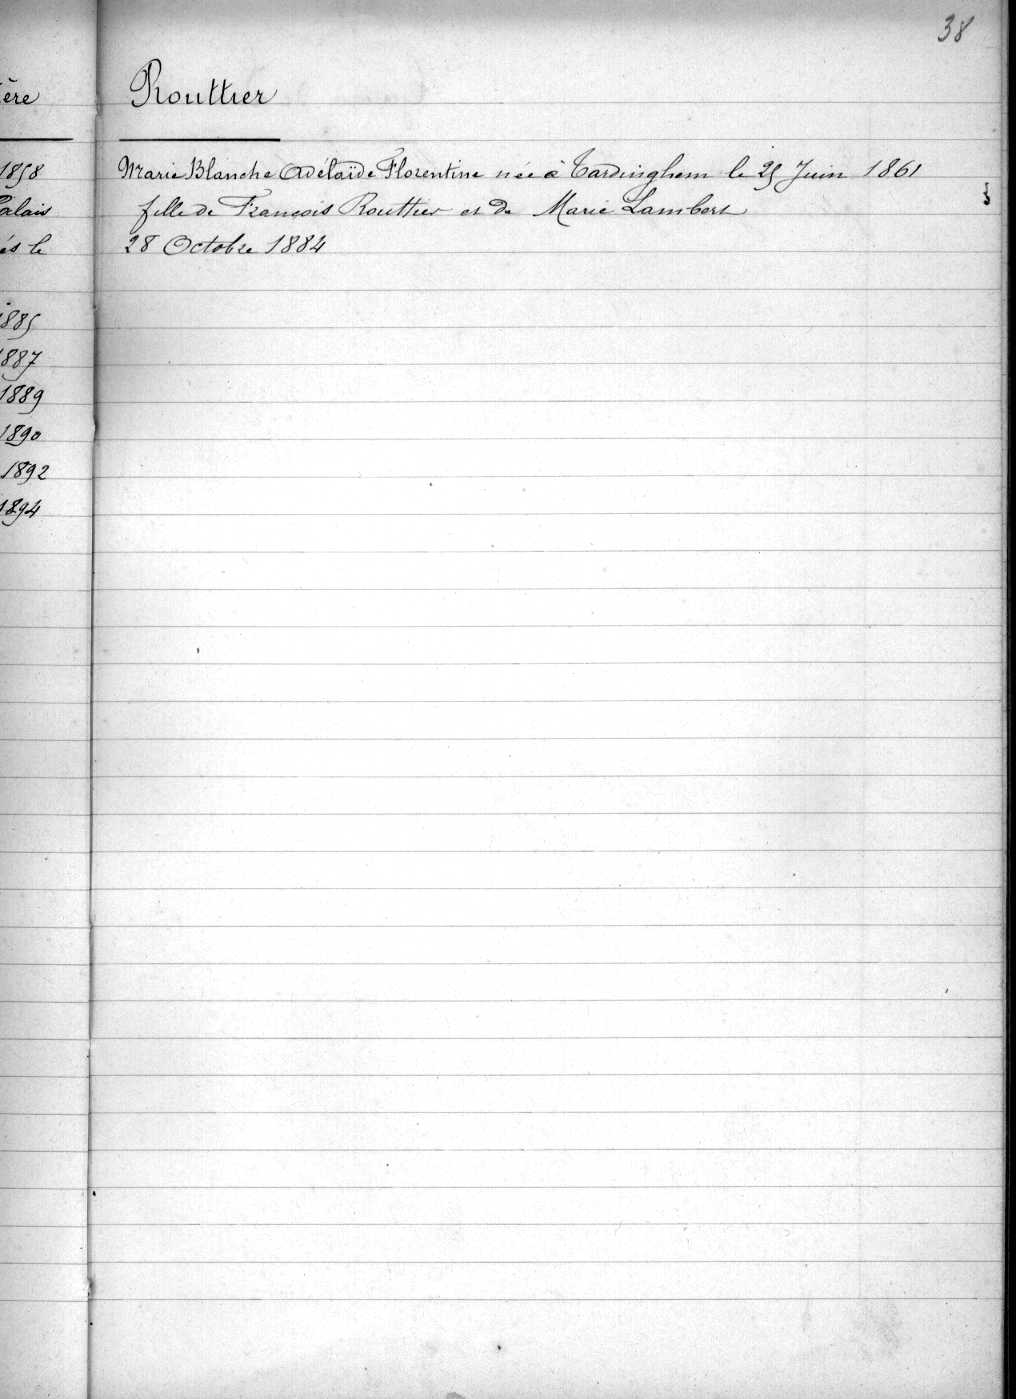 38
ère
Routtier
1858
Marie Blanche Adélaïde Florentine née à Tardinghem le 25 Juin 1861
Calais
fille de François Routtier et de Marie Lambert
és le
28 Octobre 1884
1885
1887
1889
1890
1892
1894